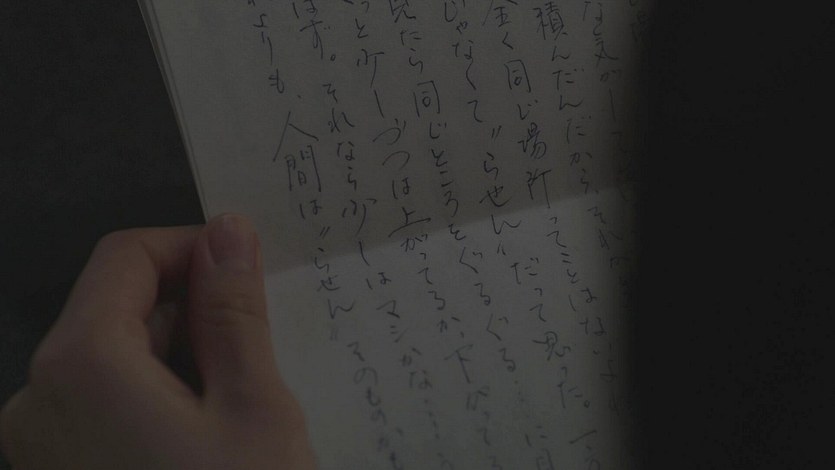 な気がし
積んだんだから、それ
全く同じ場所ってことはない
じゃなくて〝らせん〟だって思った。
見たら同じところをぐるぐる…に
っと少しづつは上がってるか、下がってる
はず。それなら少しはマシかな……
よりも、人間は〝らせん〟そのもの